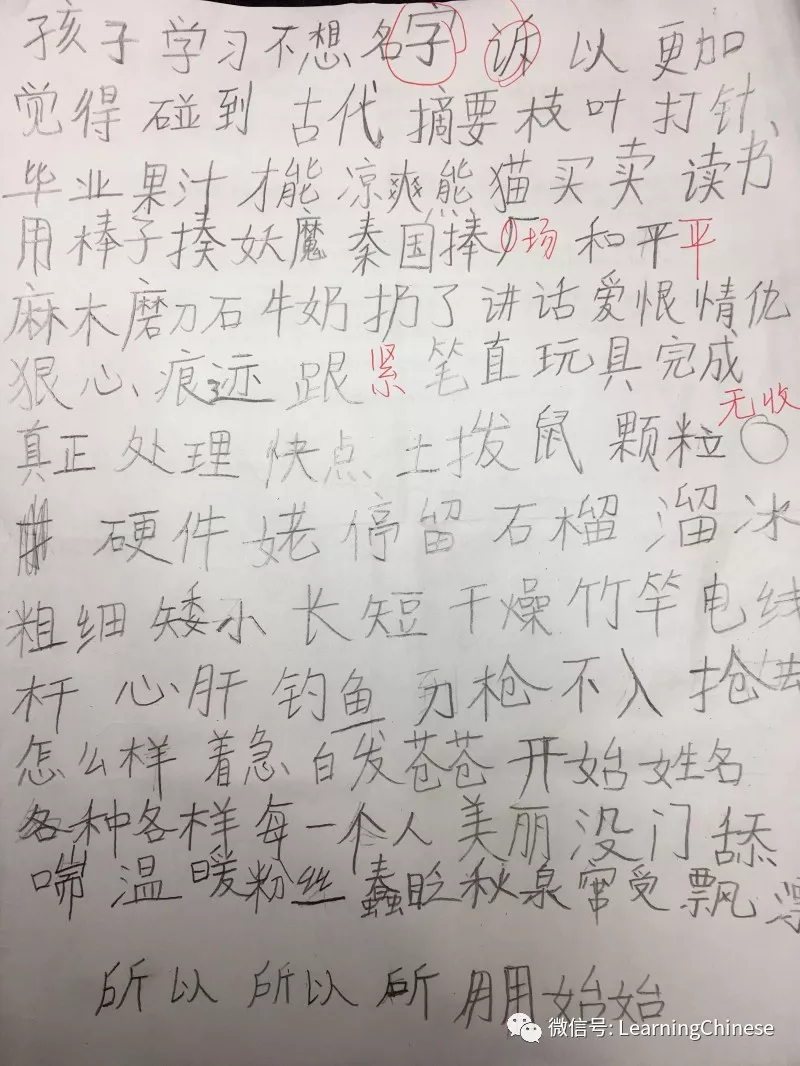 孩子 学习 不想 名字 诉以 更加
觉得 碰到 古代 摘要 枝叶 打针、
毕业 果汁 才能 凉爽 熊猫 买卖 读书
用棒子揍妖魔 秦国捧 广场 和平平
麻木 磨刀石 牛奶 扔了 讲话 爱恨情仇
狠心、痕迹 跟紧 笔直 玩具 完成
无收
真正 处理 快点 土拨鼠 颗粒〇
硬件 姥 停留 石榴 溜冰
粗细 矮小 长短 干燥 竹竿 电线
杆 心肝 钓鱼 刀枪不入 抢
怎么样 着急 白发苍苍 开始 姓名
各种各样 每一个人 美丽 没门 舔
喘 温暖 粉丝 蠢 眨 秘 泉 受 飘 漂
所以 所以 所 朋 始始
微信号: LearningChinese